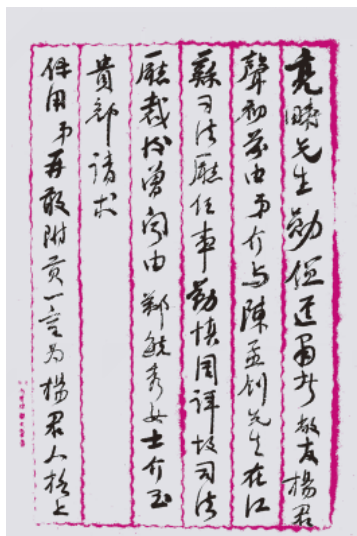 亮疇先生勛鑒者敝友楊君
聲初前由弟介与陳孟釗先生在江
蘇司法廳任事勤慎周詳故司法
廳裁後曾由鄭毓秀女士介至
貴部請求
用弟再敢附貢一言为楊君人格上